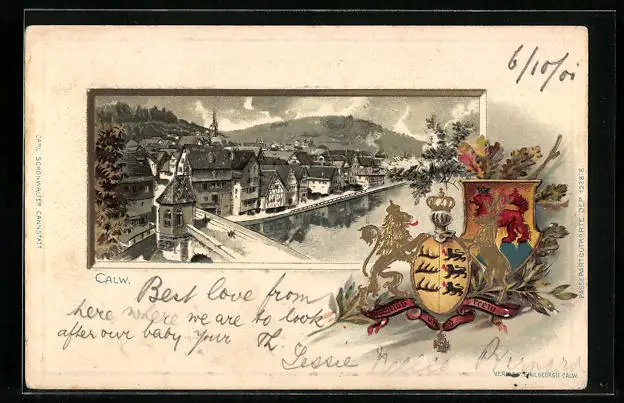 6/10/01
CARL SCHÖNWALTER CANNSTATT
PASSEPARTOUTKARTE DEP 12381
CALW.
Best love from
here where we are to look
after our baby your Th.
Jessie
VERLAG V. PAUL GEORGII CALW.